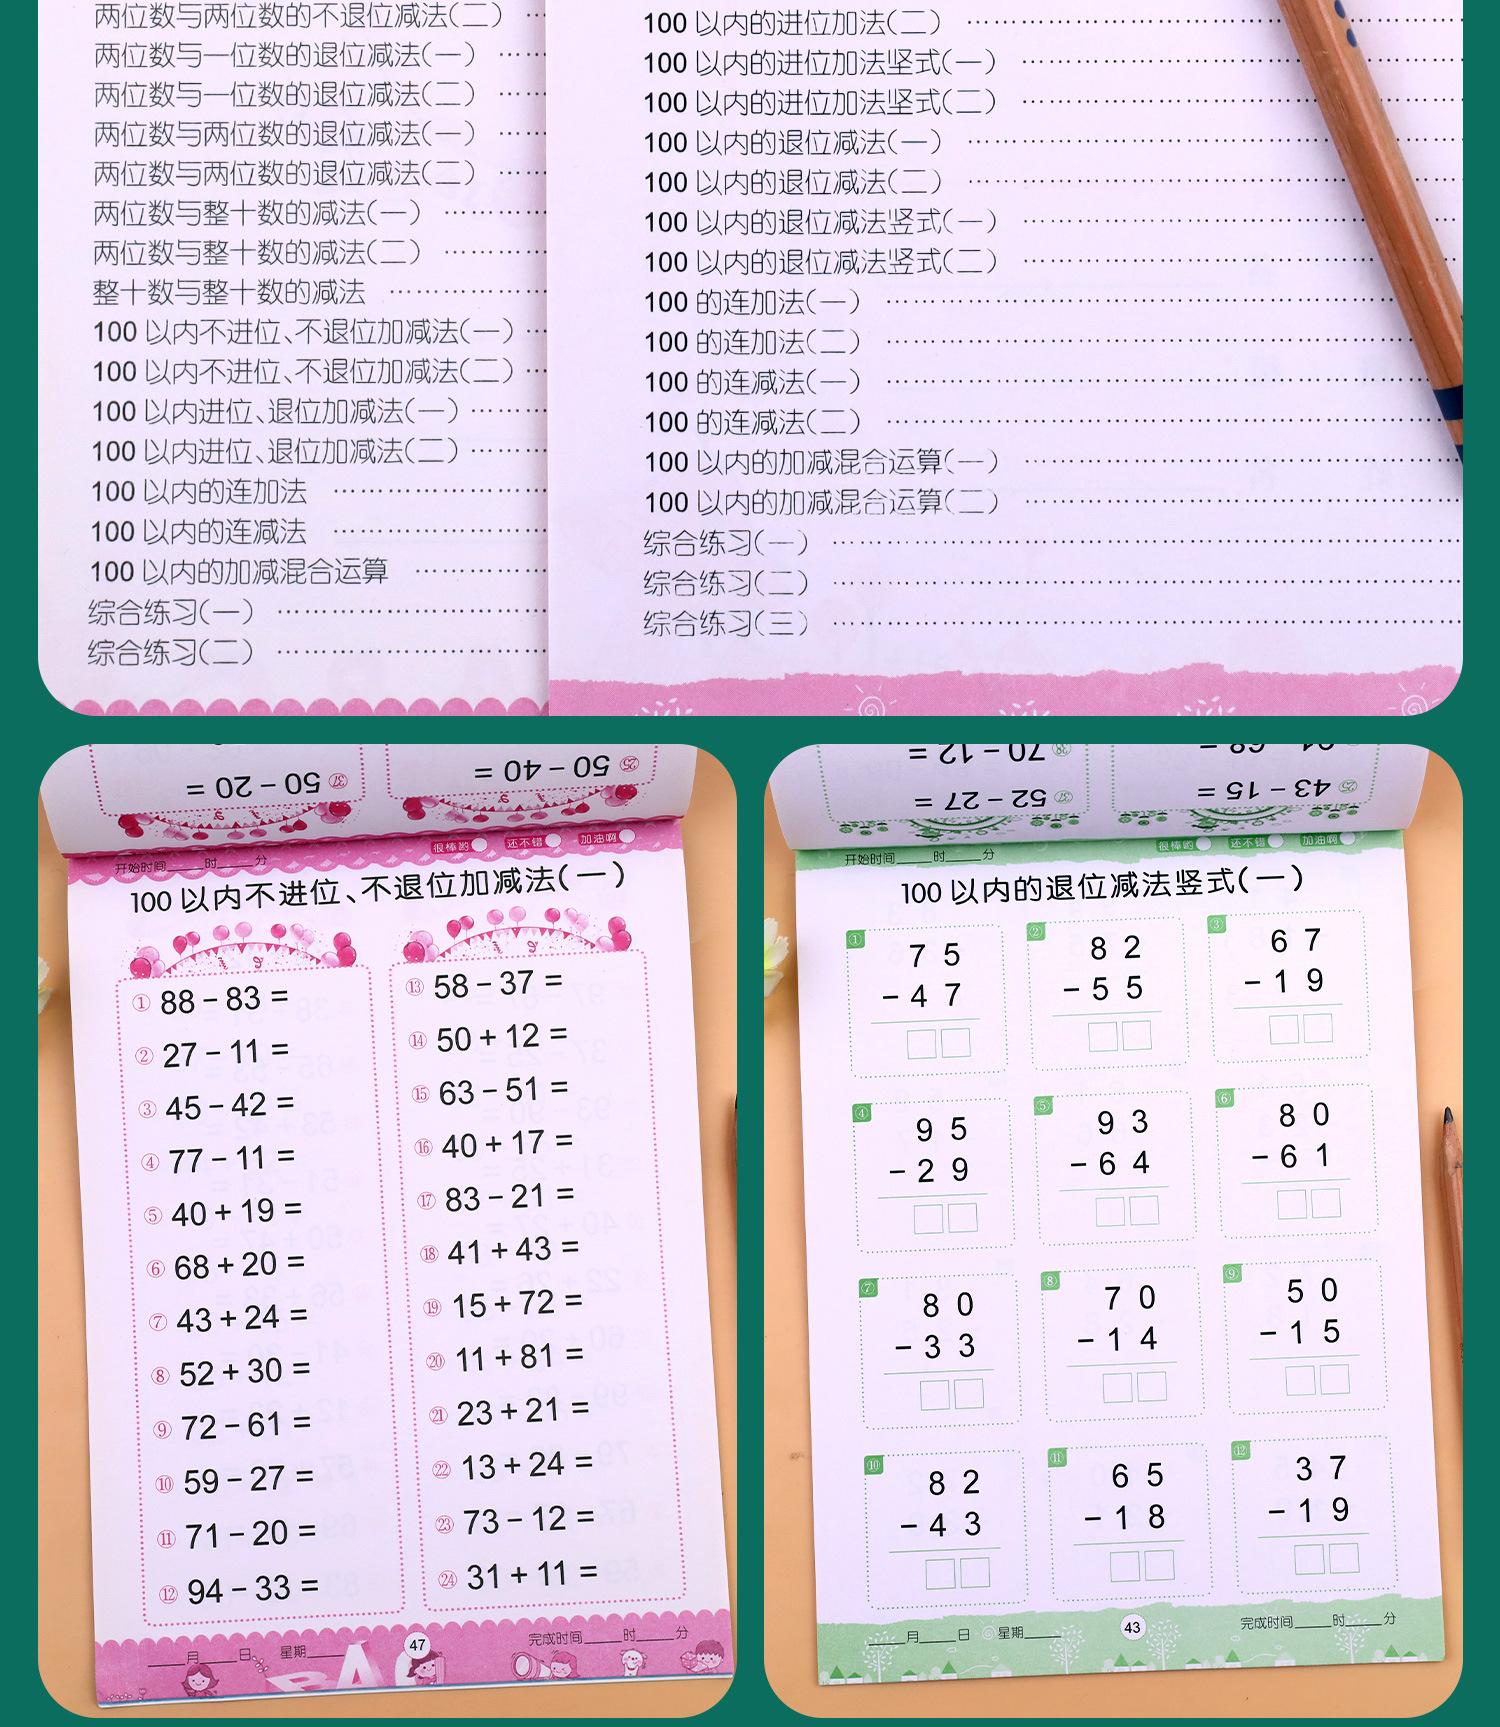 两位数与两位数的不退位减法(二) ……
两位数与一位数的退位减法(一) ……
两位数与一位数的退位减法(二) ……
两位数与两位数的退位减法(一) ……
两位数与两位数的退位减法(二) ……
两位数与整十数的减法(一) ……
两位数与整十数的减法(二) ……
整十数与整十数的减法 ……
100 以内不进位、不退位加减法(一) ……
100 以内不进位、不退位加减法(二) ……
100 以内进位、退位加减法(一) ……
100 以内进位、退位加减法(二) ……
100 以内的连加法 ……
100 以内的连减法 ……
100 以内的加减混合运算 ……
综合练习(一) ……
综合练习(二) ……
100 以内的进位加法(二) ……
100 以内的进位加法竖式(一) ……
100 以内的进位加法竖式(二) ……
100 以内的退位减法(一) ……
100 以内的退位减法(二) ……
100 以内的退位减法竖式(一) ……
100 以内的退位减法竖式(二) ……
100 的连加法(一) ……
100 的连加法(二) ……
100 的连减法(一) ……
100 的连减法(二) ……
100 以内的加减混合运算(一) ……
100 以内的加减混合运算(二) ……
综合练习(一) ……
综合练习(二) ……
综合练习(三) ……
㊲ 50 − 20 =
㉕ 50 − 40 =
很棒哟 还不错 加油啊
开始时间____时____分
100 以内不进位、不退位加减法(一)
① 88 − 83 =
② 27 − 11 =
③ 45 − 42 =
④ 77 − 11 =
⑤ 40 + 19 =
⑥ 68 + 20 =
⑦ 43 + 24 =
⑧ 52 + 30 =
⑨ 72 − 61 =
⑩ 59 − 27 =
⑪ 71 − 20 =
⑫ 94 − 33 =
⑬ 58 − 37 =
⑭ 50 + 12 =
⑮ 63 − 51 =
⑯ 40 + 17 =
⑰ 83 − 21 =
⑱ 41 + 43 =
⑲ 15 + 72 =
⑳ 11 + 81 =
㉑ 23 + 21 =
㉒ 13 + 24 =
㉓ 73 − 12 =
㉔ 31 + 11 =
____月____日 星期____
47
完成时间____时____分
㊳ 70 − 12 =
㊲ 52 − 27 =
㉕ 43 − 15 =
很棒哟 还不错 加油啊
开始时间____时____分
100 以内的退位减法竖式(一)
① ② ③
7 5 8 2 6 7
− 4 7 − 5 5 − 1 9
④ ⑤ ⑥
9 5 9 3 8 0
− 2 9 − 6 4 − 6 1
⑦ ⑧ ⑨
8 0 7 0 5 0
− 3 3 − 1 4 − 1 5
⑩ ⑪ ⑫
8 2 6 5 3 7
− 4 3 − 1 8 − 1 9
____月____日 星期____
43
完成时间____时____分